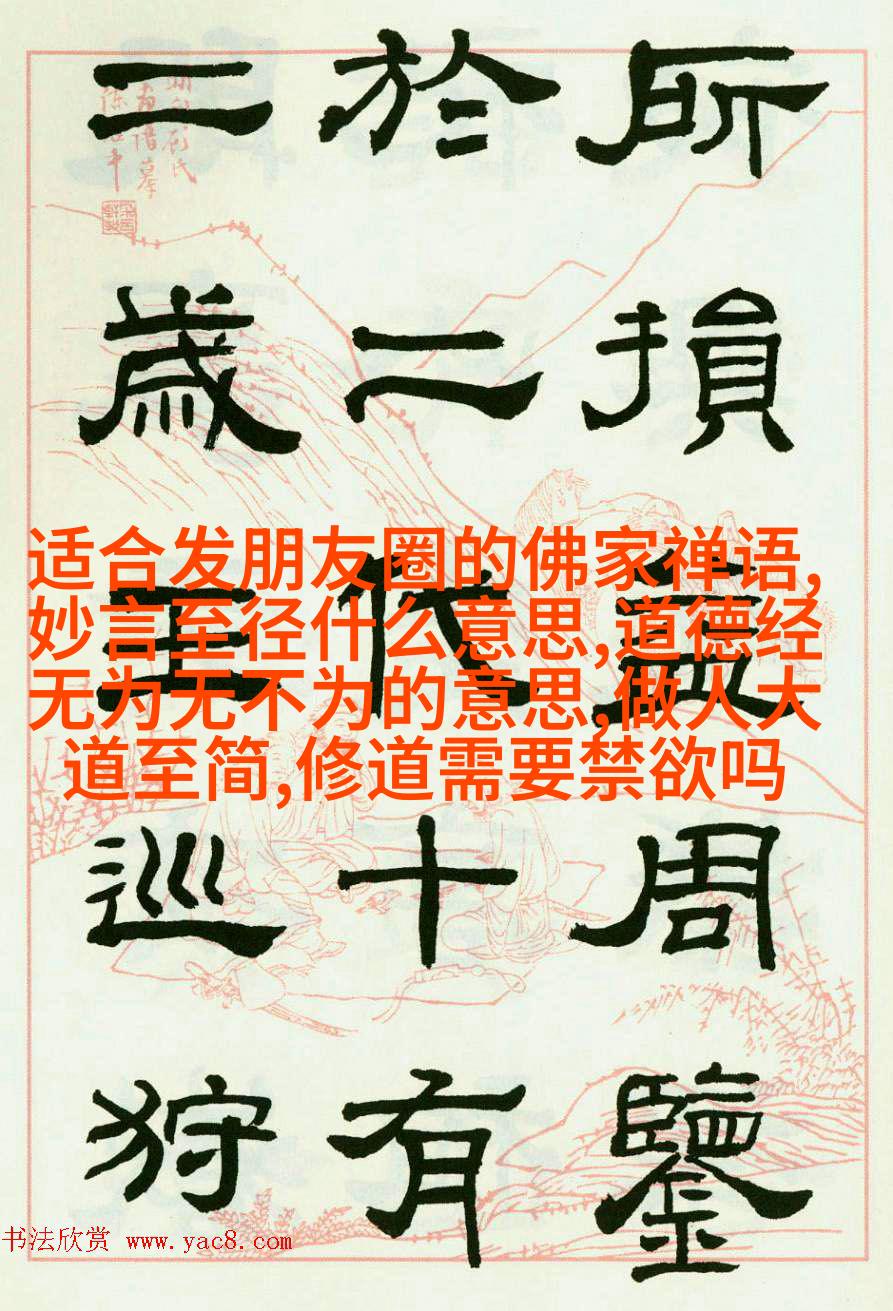 所損益周鑒
於二代十有
二歲王巡狩
适合发朋友圈的佛家禅语,
妙言至径什么意思,道德经
无为无不为的意思,做人大
道至简,修道需要禁欲吗
书法欣赏 www.yac8.com